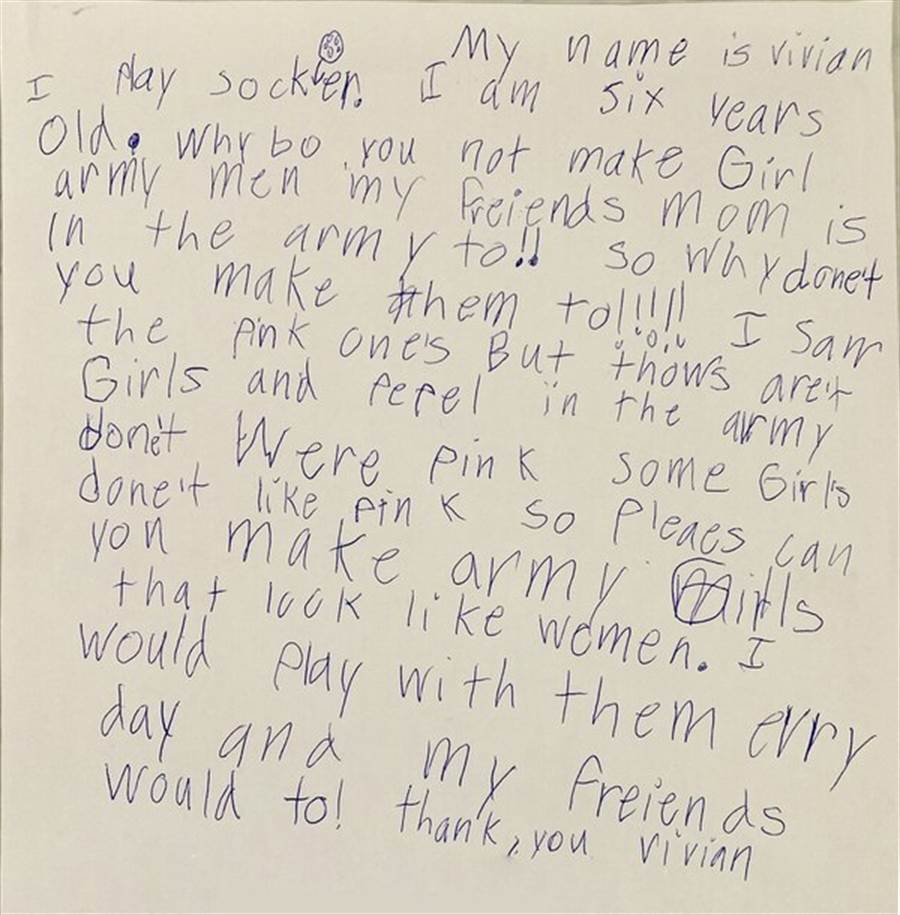 My name is vivian
I play socker. I am six years
old. Why bo you not make Girl
army men my freiends mom is
in the army to!! so why done't
you make them to!!!!! I Saw
the pink one's But thows are't
Girls and pepel in the army
don't Were pink some Girls
done't like pink so Pleaes can
you make army Girls
that look like women. I
would play with them evry
day and my freiends
would to! thank, you vivian